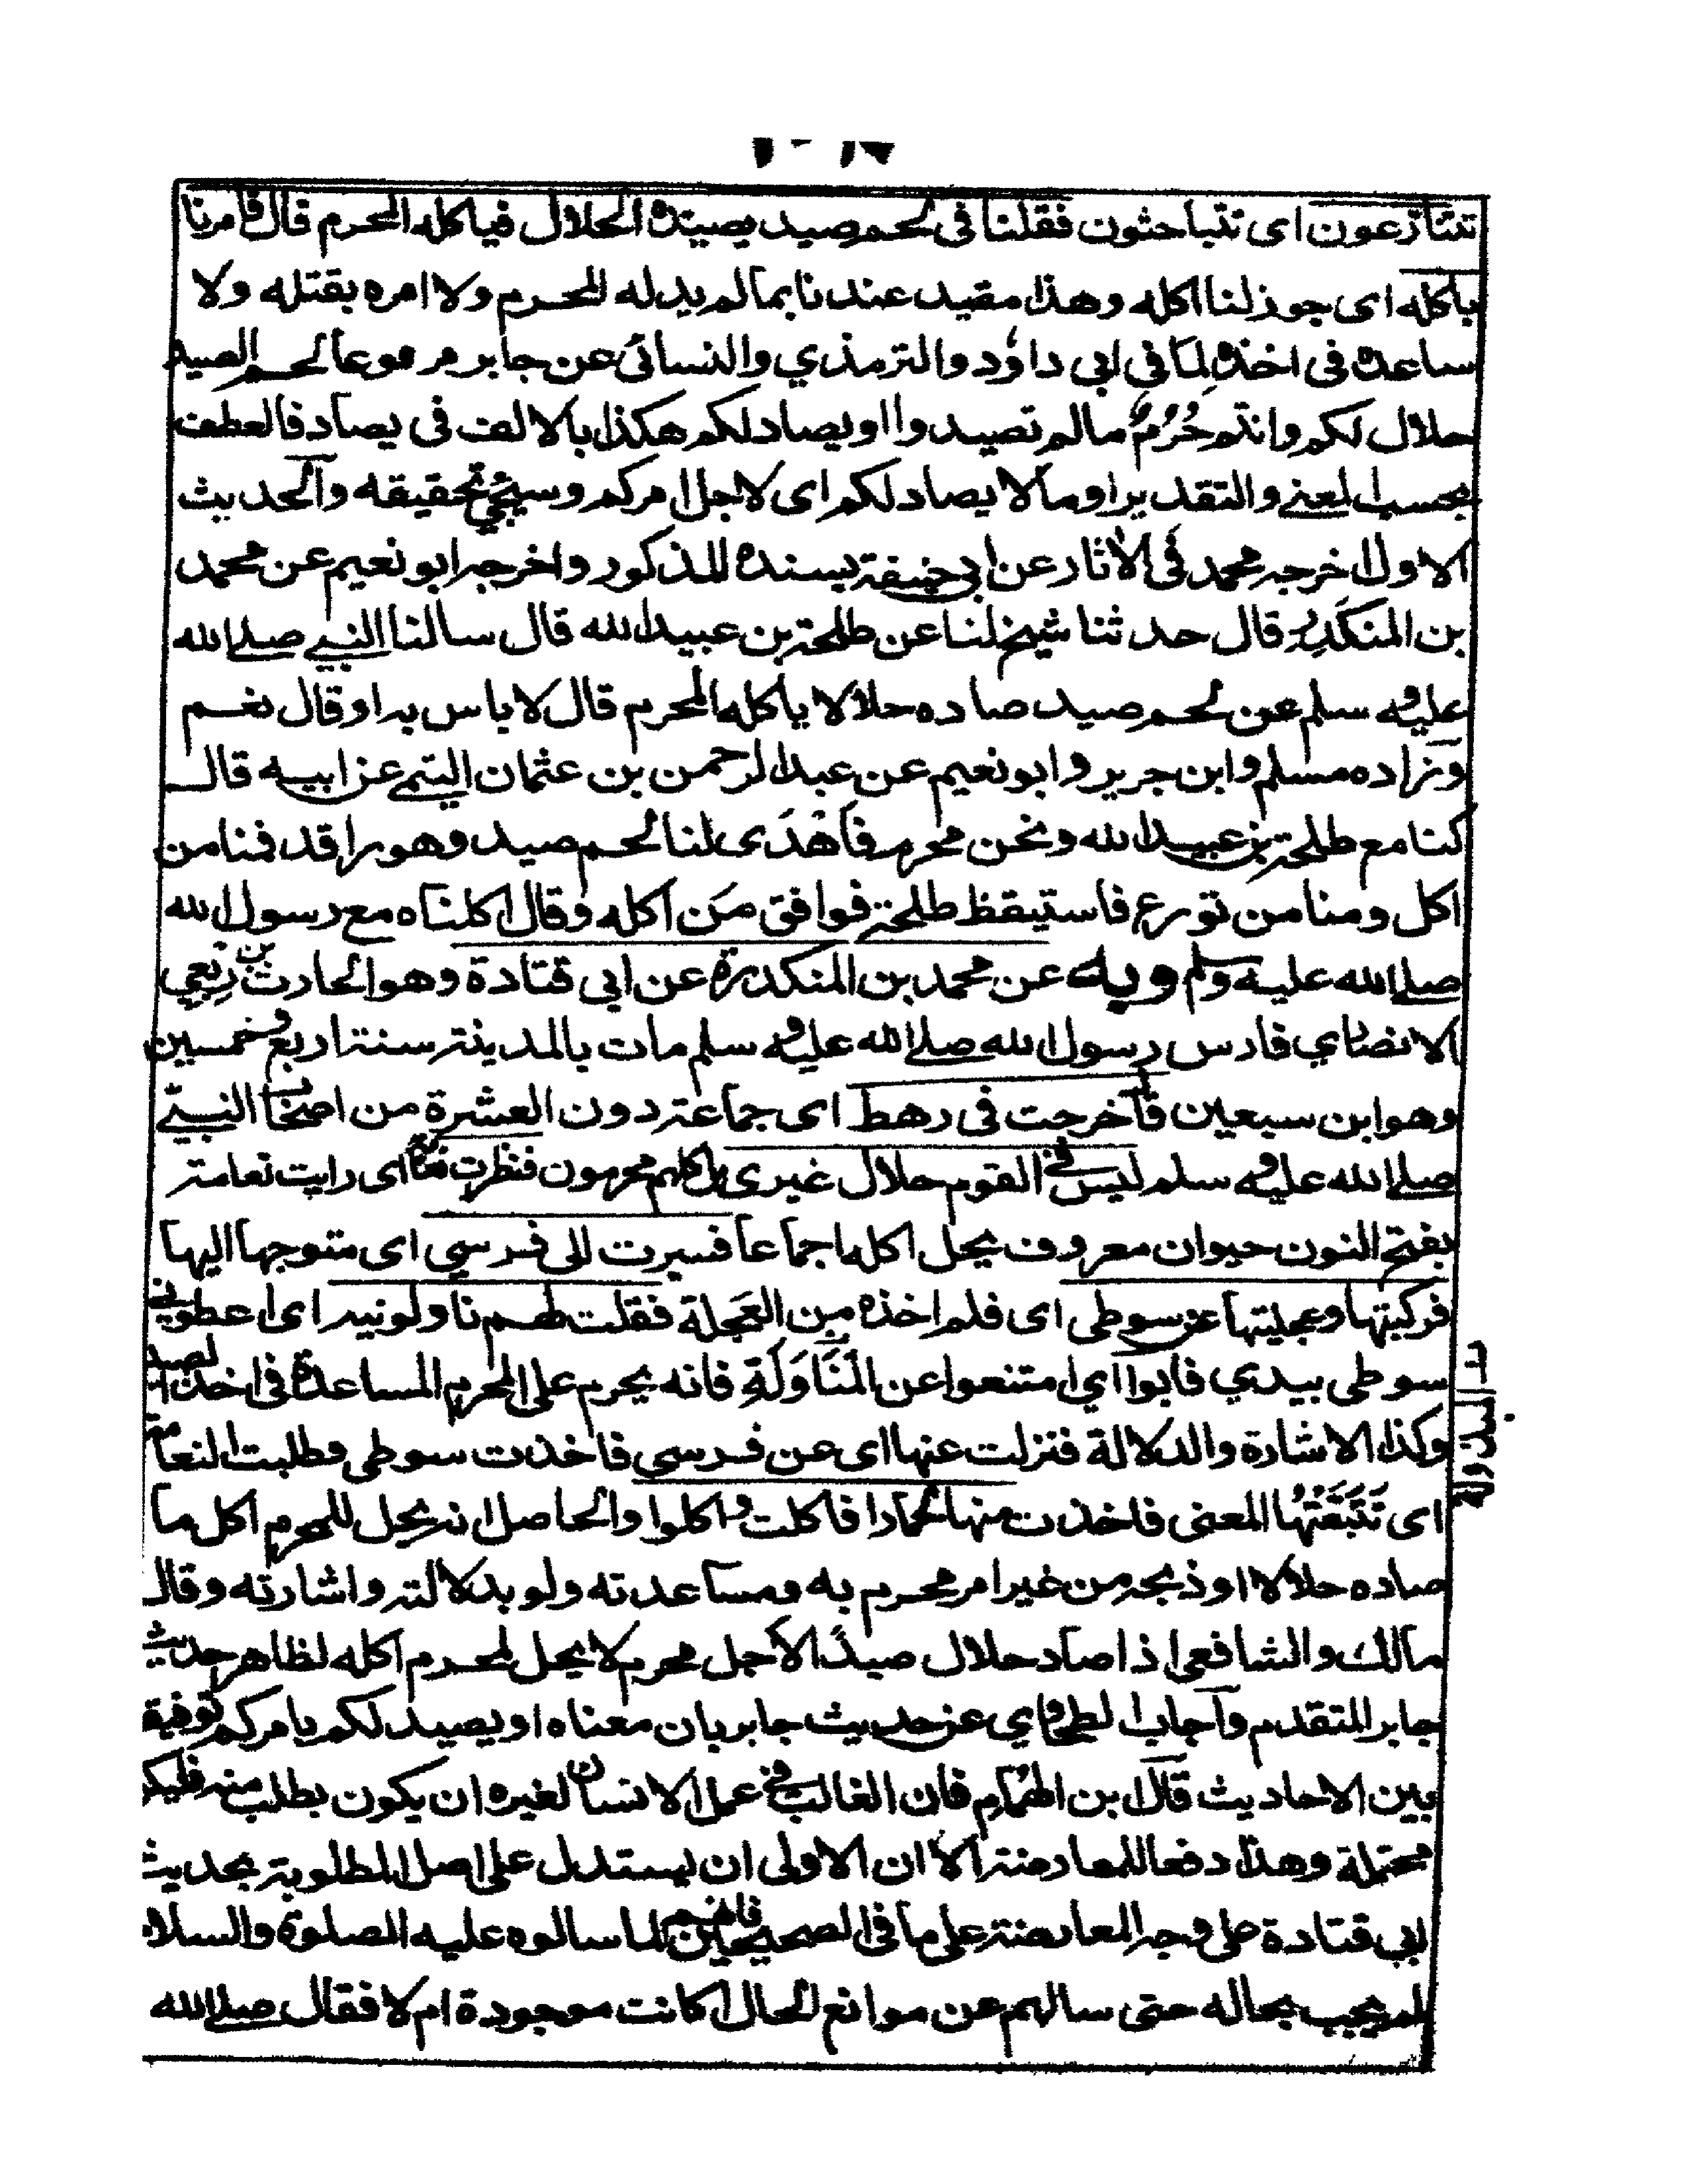 تتنازعون اى تتباحثون فقلنا فى لحم صيد يصيده الحلال فياكله المحرم قال فامرنا
باكله اى جوز لنا اكله وهذا مقيد عندنا بما لم يدله المحرم ولا امره بقتله ولا
ساعده فى اخذه لما في ابي داود والترمذي والنسائى عن جابر مرفوعا لحم الصيد
حلال لكم وانتم حُرُم ما لم تصيدوا او يصاد لكم هكذا بالالف فى يصاد فالعطف
بحسب المعنى والتقدير او ما لا يصاد لكم اى لاجل امركم وسيجي تحقيقه والحديث
الاول اخرجه محمد فى الاثار عن ابي حنيفة بسنده المذكور واخرجه ابو نعيم عن محمد
بن المنكدر قال حدثنا شيخ لنا عن طلحة بن عبيد الله قال سالنا النبي صلى الله
عليه وسلم عن لحم صيد صاده حلالا ياكله المحرم قال لا باس به او قال نعم
وزاده مسلم وابن جرير وابو نعيم عن عبد الرحمن بن عثمان التيمى عن ابيه قال
كنا مع طلحة بن عبيد الله ونحن محرم فاهدى لنا لحم صيد وهو راقد فمنا من
اكل ومنا من تورع فاستيقظ طلحة فوافق من اكله وقال اكلناه مع رسول الله
صلى الله عليه وسلم وبه عن محمد بن المنكدر عن ابي قتادة وهو الحارث بن ربعي
الانصاري فارس رسول الله صلى الله عليه وسلم مات بالمدينة سنة اربع وخمسين
وهو ابن سبعين قال خرجت فى رهط اى جماعة دون العشرة من اصحاب النبي
صلى الله عليه وسلم ليس فى القوم حلال غيرى بل كلهم محرمون فنظرت نعامة اى رايت نعامة
بفتح النون حيوان معروف يحل اكله اجماعا فسرت الى فرسي اى متوجها اليها
فركبتها وعجلتها عن سوطى اى فلم اخذه من العجلة فقلت لهم ناولونيه اى اعطونى
سوطى بيدي فابوا اي امتنعوا عن المناولة فانه يحرم على المحرم المساعدة فى اخذ الصيد
وكذا الاشارة والدلالة فنزلت عنها اى عن فرسي فاخذت سوطى فطلبت النعامة
اى تتبعتها المعنى فاخذت منها حمارا فاكلت واكلوا والحاصل انه يحل للمحرم اكل ما
صاده حلالا او ذبحه من غير امر محرم به ومساعدته ولو بدلالته واشارته وقال
مالك والشافعى اذا صاد حلال صيدًا لاجل محرم لا يحل لمحرم اكله لظاهر حديث
جابر المتقدم واجاب الطحاوي عن حديث جابر بان معناه او يصيد لكم بامركم توفيقا
بين الاحاديث قال بن الهمام فان الغالب فى عمل الانسان لغيره ان يكون بطلب منه فليكن
محتملة وهذا دفعا للمعارضة الا ان الاولى ان يستدل على اصل المطلوبة بحديث
ابي قتادة على وجه المعارضة على ما فى الصحيحين فانهم لما سالوه عليه الصلوة والسلام
لم يجب بحاله حتى سالهم عن موانع الحال اكانت موجودة ام لا فقال صلى الله